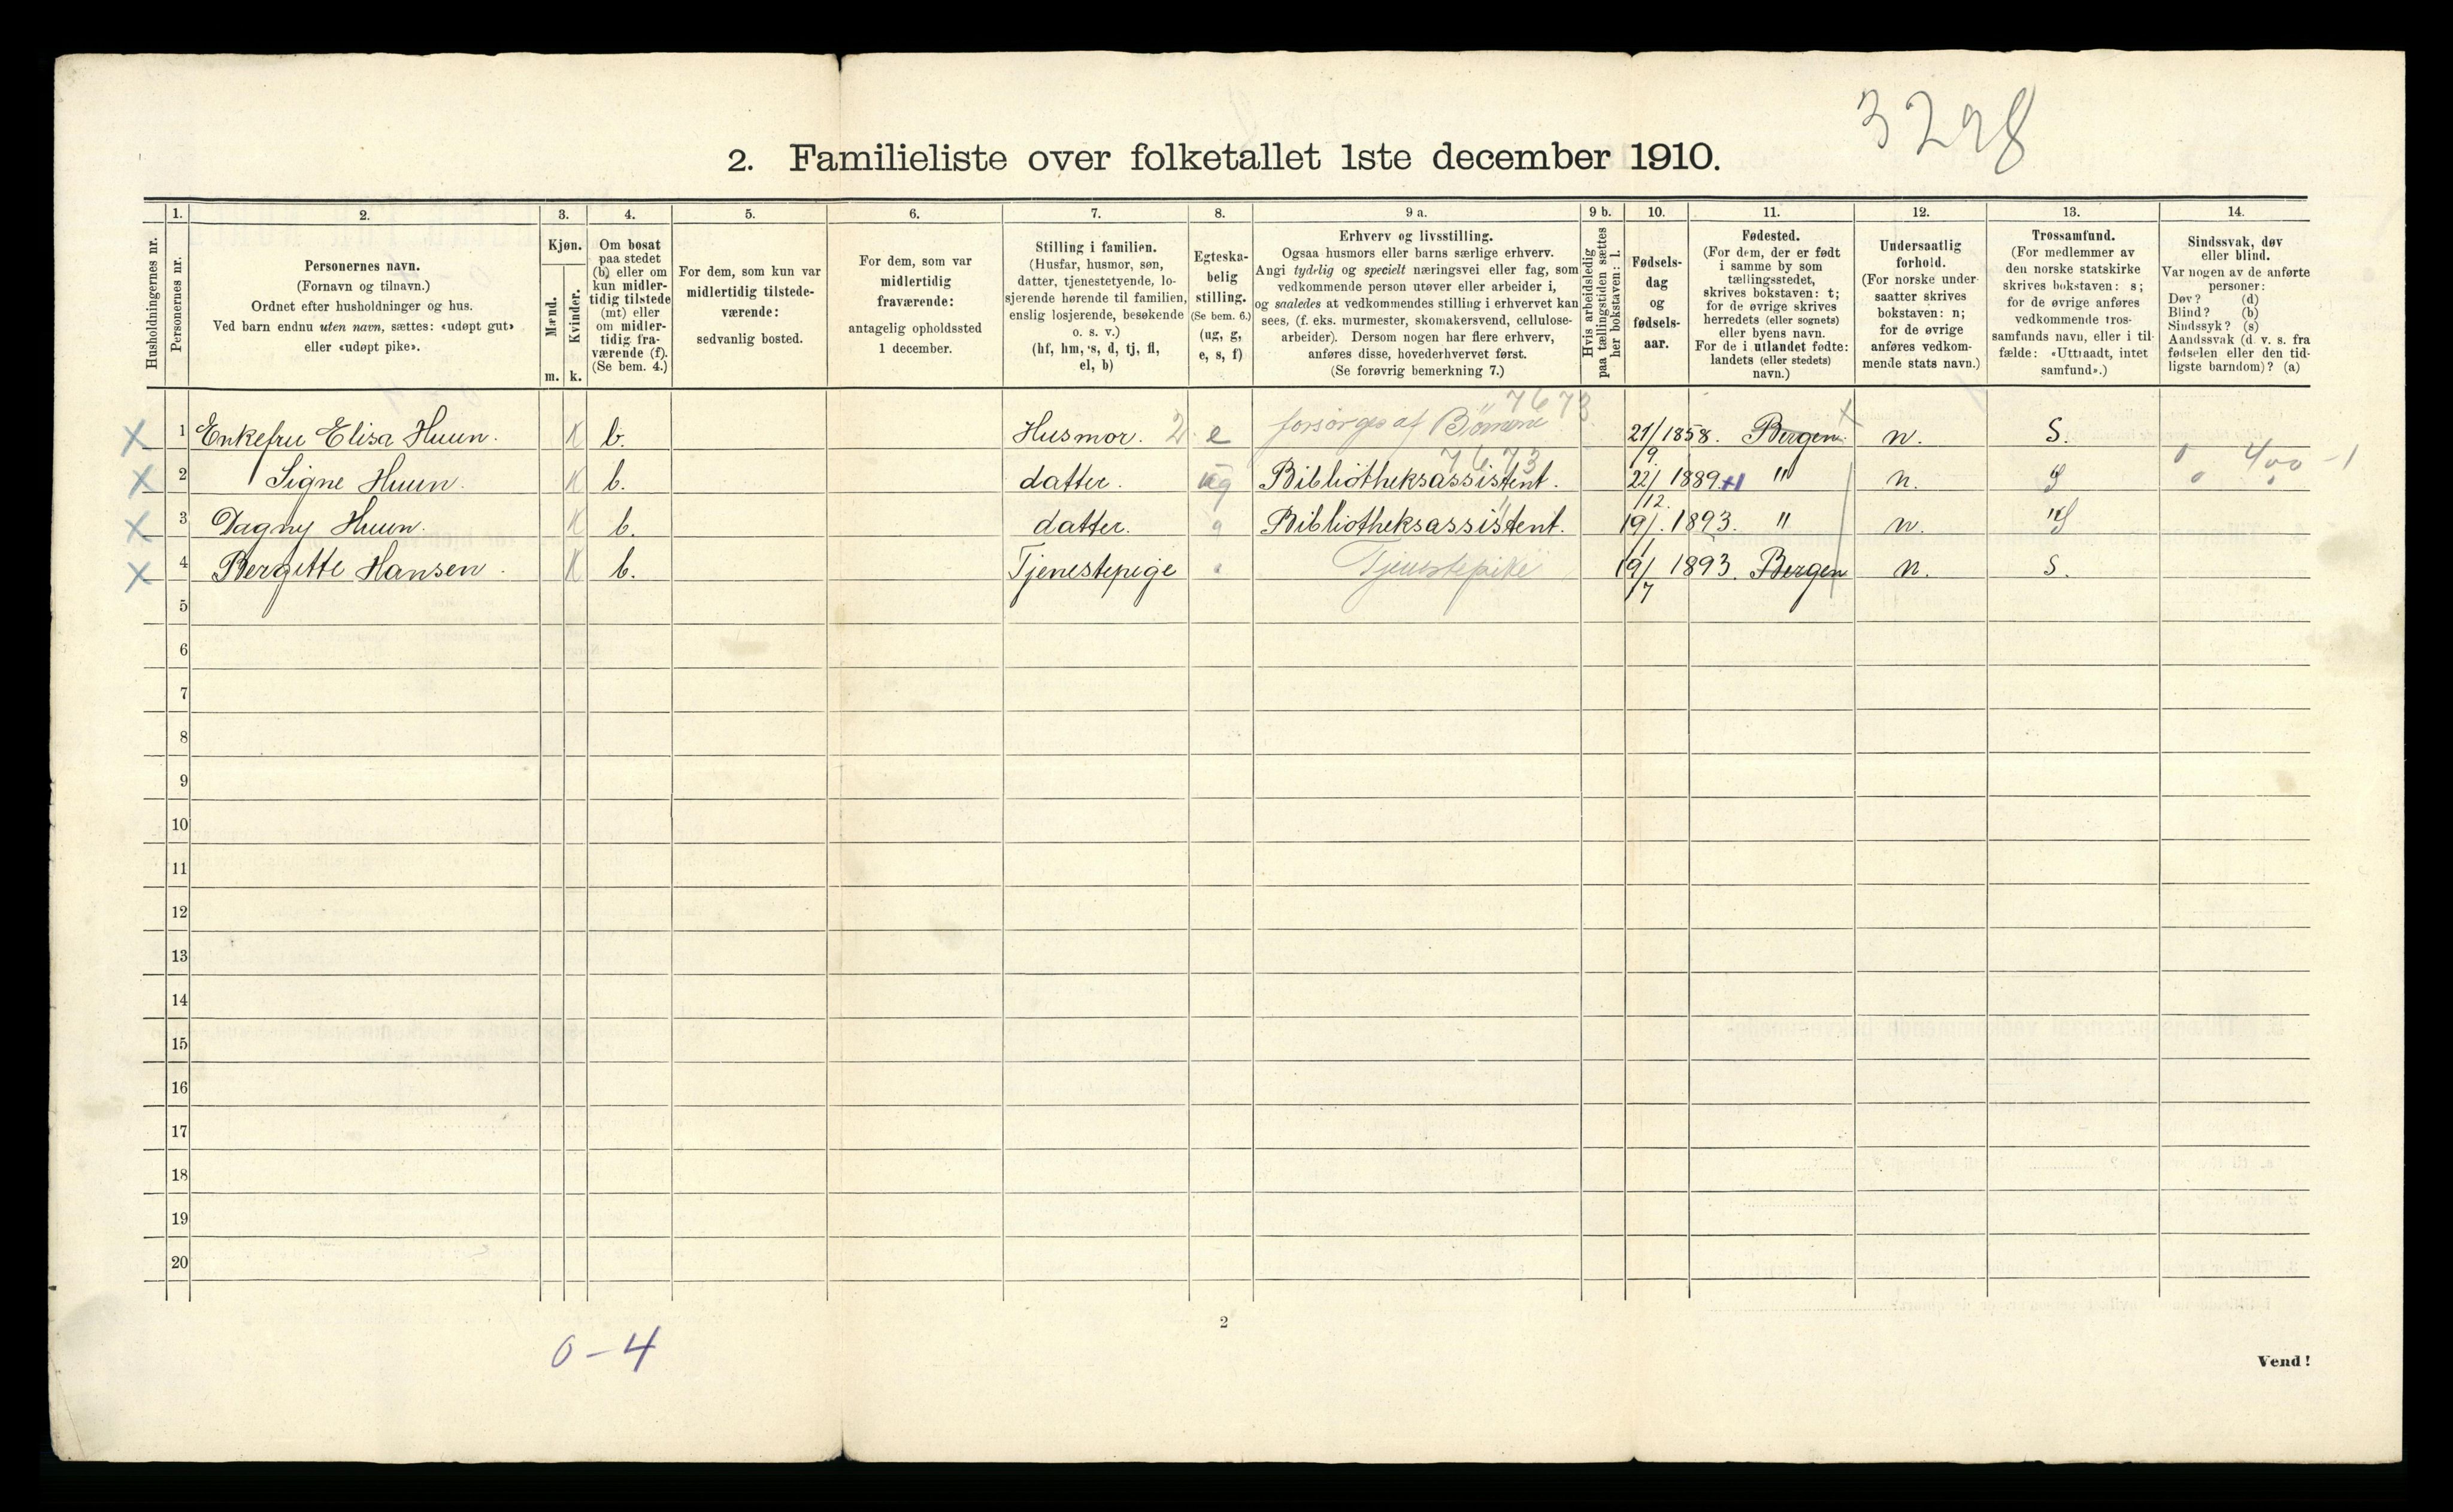 3298
2. Familieliste over folketallet 1ste december 1910.
Husholdningernes nr.
1.
Personernes nr.
2.
Personernes navn.
(Fornavn og tilnavn.)
Ordnet efter husholdninger og hus.
Ved barn endnu uten navn, sættes: «udøpt gut»
eller «udøpt pike».
3.
Kjøn.
Mænd.
Kvinder.
m. k.
4.
Om bosat
paa stedet
(b) eller om
kun midler-
tidig tilstede
(mt) eller
om midler-
tidig fra-
værende (f).
(Se bem. 4.)
5.
For dem, som kun var
midlertidig tilstede-
værende:
sedvanlig bosted.
6.
For dem, som var
midlertidig
fraværende:
antagelig opholdssted
1 december.
7.
Stilling i familien.
(Husfar, husmor, søn,
datter, tjenestetyende, lo-
sjerende hørende til familien,
enslig losjerende, besøkende
o. s. v.)
(hf, hm, s, d, tj, fl,
el, b)
8.
Egteska-
belig
stilling.
(Se bem. 6.)
(ug, g,
e, s, f)
9 a.
Erhverv og livsstilling.
Ogsaa husmors eller barns særlige erhverv.
Angi tydelig og specielt næringsvei eller fag, som
vedkommende person utøver eller arbeider i,
og saaledes at vedkommendes stilling i erhvervet kan
sees, (f. eks. murmester, skomakersvend, cellulose-
arbeider). Dersom nogen har flere erhverv,
anføres disse, hovederhvervet først.
(Se forøvrig bemerkning 7.)
9 b.
Hvis arbeidsledig
paa tællingstiden sættes
her bokstaven: l.
10.
Fødsels-
dag
og
fødsels-
aar.
11.
Fødested.
(For dem, der er født
i samme by som
tællingsstedet,
skrives bokstaven: t;
for de øvrige skrives
herredets (eller sognets)
eller byens navn.
For de i utlandet fødte:
landets (eller stedets)
navn.)
12.
Undersaatlig
forhold.
(For norske under-
saatter skrives
bokstaven: n;
for de øvrige
anføres vedkom-
mende stats navn.)
13.
Trossamfund.
(For medlemmer av
den norske statskirke
skrives bokstaven: s;
for de øvrige anføres
vedkommende tros-
samfunds navn, eller i til-
fælde: «Uttraadt, intet
samfund».)
14.
Sindssvak, døv
eller blind.
Var nogen av de anførte
personer:
Døv? (d)
Blind? (b)
Sindssyk? (s)
Aandssvak (d. v. s. fra
fødselen eller den tid-
ligste barndom)? (a)
7673
X 1 Enkefru Elisa Huun. K b. Husmor. 2 e forsørges af Börnene 21/9 1858. Bergen. n. S.
7673 400 - 1
X 2 Signe Huun. K b. datter. ug Bibliotheksassistent. 22/12. 1889 " n. S
X 3 Dagny Huun. K b. datter. " Bibliotheksassistent. 19/1. 1893. " n. " S
X 4 Bergitte Hansen. K b. Tjenestepige " Tjenestepike 19/7 1893. Bergen n. S.
5
6
7
8
9
10
11
12
13
14
15
16
17
18
19
20
2
0 - 4
Vend!